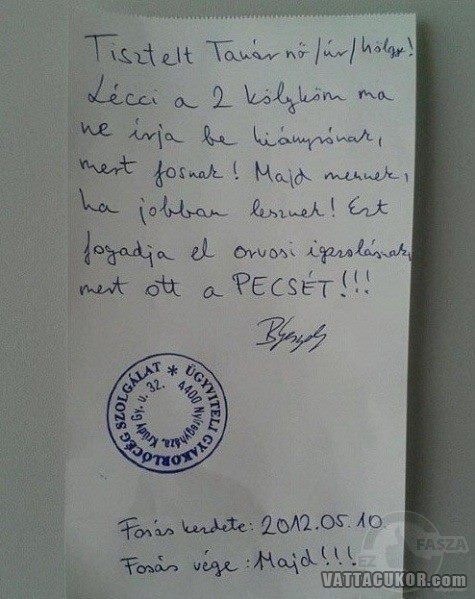 Tisztelt Tanár nő/úr/hölgy!
Lécci a 2 kölyköm ma
ne írja be hiányzónak,
mert fosnak! Majd mennek,
ha jobban lesznek! Ezt
fogadja el orvosi igazolásnak,
mert ott a PECSÉT!!!
ÜGYVITELI GYAKORLÓCÉG SZOLGÁLAT *
4400 Nyíregyháza, Krúdy Gy. u. 32.
Fosás kezdete: 2012.05.10
Fosás vége: Majd!!!
EZ FASZA
VATTACUKOR.COM